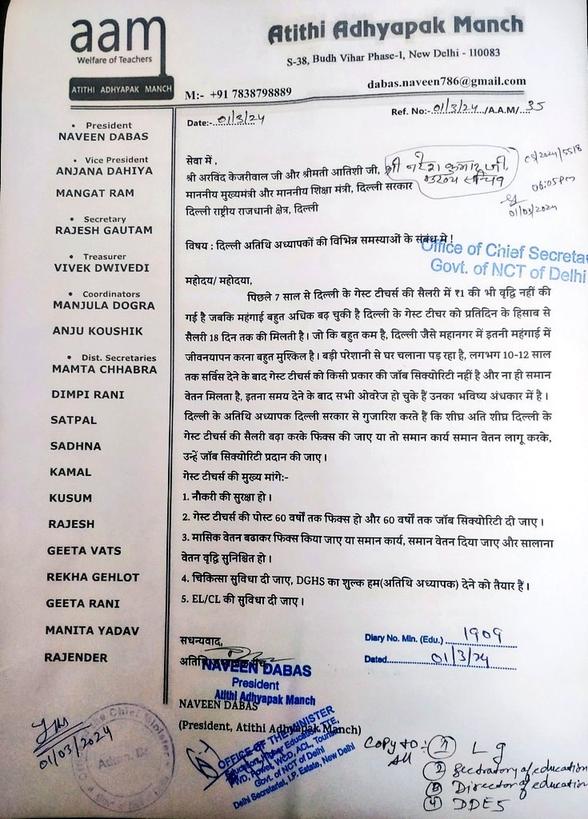 aam
Welfare of Teachers
ATITHI ADHYAPAK MANCH
Atithi Adhyapak Manch
S-38, Budh Vihar Phase-1, New Delhi - 110083
M:- +91 7838798889
dabas.naveen786@gmail.com
Date:- 01/3/24
Ref. No:- 01/3/24 /A.A.M/ 35
• President
NAVEEN DABAS
• Vice President
ANJANA DAHIYA
MANGAT RAM
• Secretary
RAJESH GAUTAM
• Treasurer
VIVEK DWIVEDI
• Coordinators
MANJULA DOGRA
ANJU KOUSHIK
• Dist. Secretaries
MAMTA CHHABRA
DIMPI RANI
SATPAL
SADHNA
KAMAL
KUSUM
RAJESH
GEETA VATS
REKHA GEHLOT
GEETA RANI
MANITA YADAV
RAJENDER
सेवा में ,
श्री अरविंद केजरीवाल जी और श्रीमती आतिशी जी, श्री नरेश कुमार जी,
माननीय मुख्यमंत्री और माननीय शिक्षा मंत्री, दिल्ली सरकार मुख्य सचिव
दिल्ली राष्ट्रीय राजधानी क्षेत्र, दिल्ली
06:05pm
01/03/2024
विषय : दिल्ली अतिथि अध्यापकों की विभिन्न समस्याओं के संबंध में !
Office of Chief Secreta
Govt. of NCT of Delhi
महोदय/ महोदया,
पिछले 7 साल से दिल्ली के गेस्ट टीचर्स की सैलरी में ₹1 की भी वृद्धि नहीं की
गई है जबकि महंगाई बहुत अधिक बढ़ चुकी है दिल्ली के गेस्ट टीचर को प्रतिदिन के हिसाब से
सैलरी 18 दिन तक की मिलती है। जो कि बहुत कम है, दिल्ली जैसे महानगर में इतनी महंगाई में
जीवनयापन करना बहुत मुश्किल है। बड़ी परेशानी से घर चलाना पड़ रहा है, लगभग 10-12 साल
तक सर्विस देने के बाद गेस्ट टीचर्स को किसी प्रकार की जॉब सिक्योरिटी नहीं है और ना ही समान
वेतन मिलता है, इतना समय देने के बाद सभी ओवरेज हो चुके हैं उनका भविष्य अंधकार में है।
दिल्ली के अतिथि अध्यापक दिल्ली सरकार से गुजारिश करते हैं कि शीघ्र अति शीघ्र दिल्ली के
गेस्ट टीचर्स की सैलरी बढ़ा करके फिक्स की जाए या तो समान कार्य समान वेतन लागू करके,
उन्हें जॉब सिक्योरिटी प्रदान की जाए।
गेस्ट टीचर्स की मुख्य मांगे:-
1. नौकरी की सुरक्षा हो।
2. गेस्ट टीचर्स की पोस्ट 60 वर्षों तक फिक्स हो और 60 वर्षों तक जॉब सिक्योरिटी दी जाए।
3. मासिक वेतन बढाकर फिक्स किया जाए या समान कार्य, समान वेतन दिया जाए और सालाना
वेतन वृद्धि सुनिश्चित हो।
4. चिकित्सा सुविधा दी जाए, DGHS का शुल्क हम(अतिथि अध्यापक) देने को तैयार हैं।
5. EL/CL की सुविधा दी जाए।
सधन्यवाद,
Diary No. Min. (Edu.) 1909
Dated 01/3/24
NAVEEN DABAS
President
Atithi Adhyapak Manch
NAVEEN DABAS
(President, Atithi Adhyapak Manch)
OFFICE OF THE MINISTER
Govt. of NCT of Delhi
Delhi Secretariat, I.P. Estate, New Delhi
01/03/2024
Copy to :- ① L G
② Secratory of education
③ Director of education
④ DDES